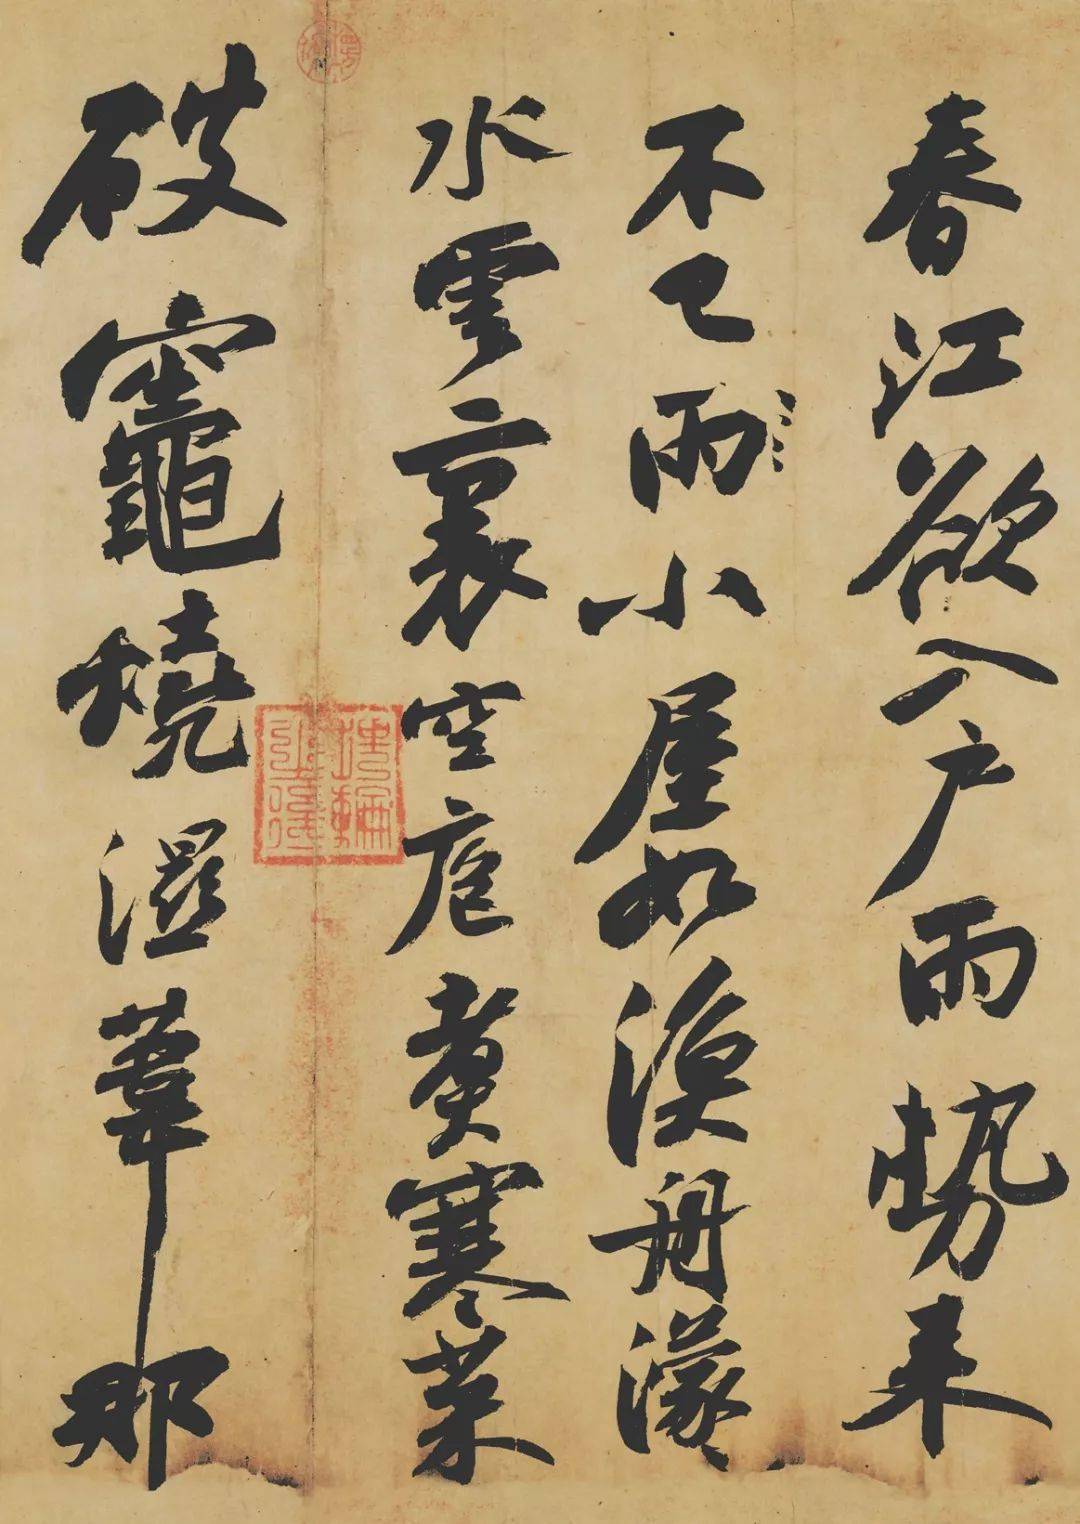 春江欲入戶雨勢來
不已雨小屋如漁舟濛〻
水雲裏空庖煮寒菜
破竈燒濕葦那
埋輪之後